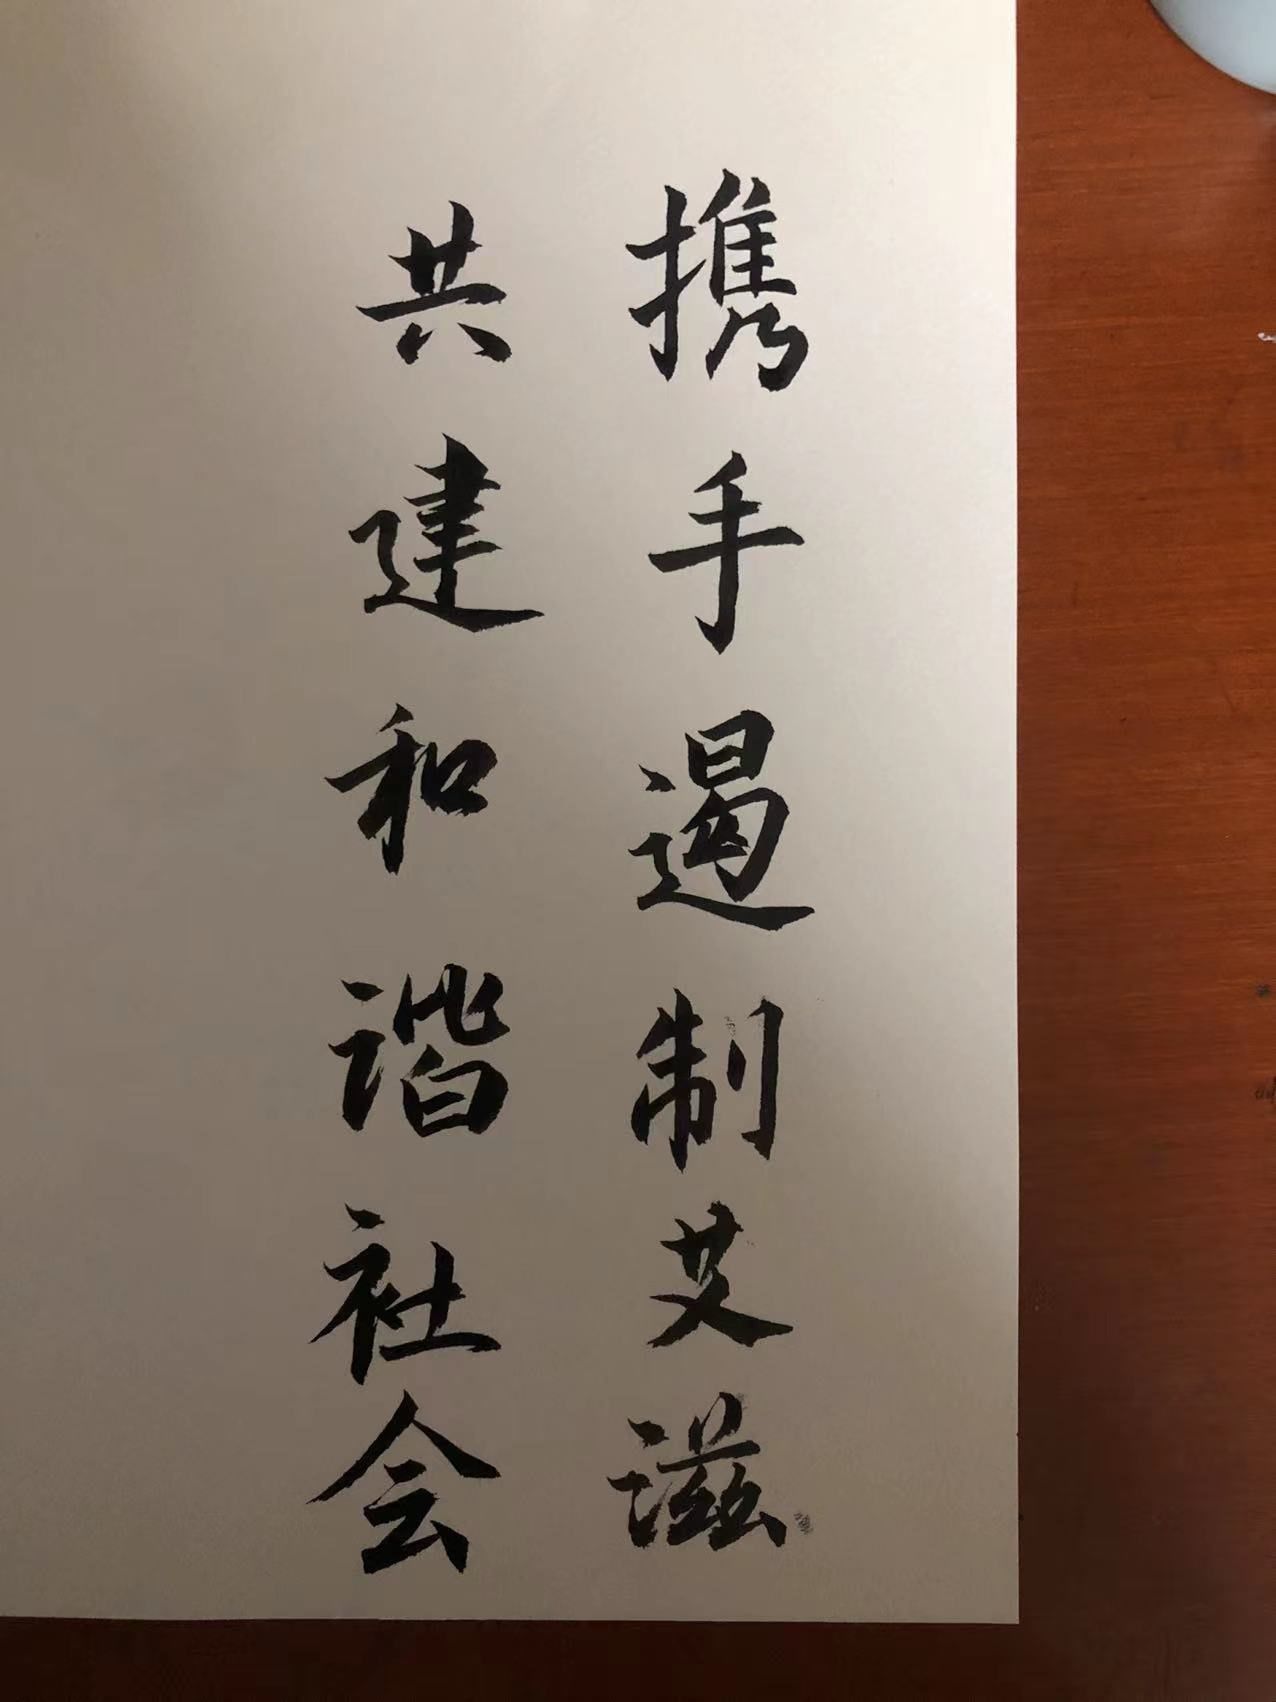 携手遏制艾滋
共建和谐社会